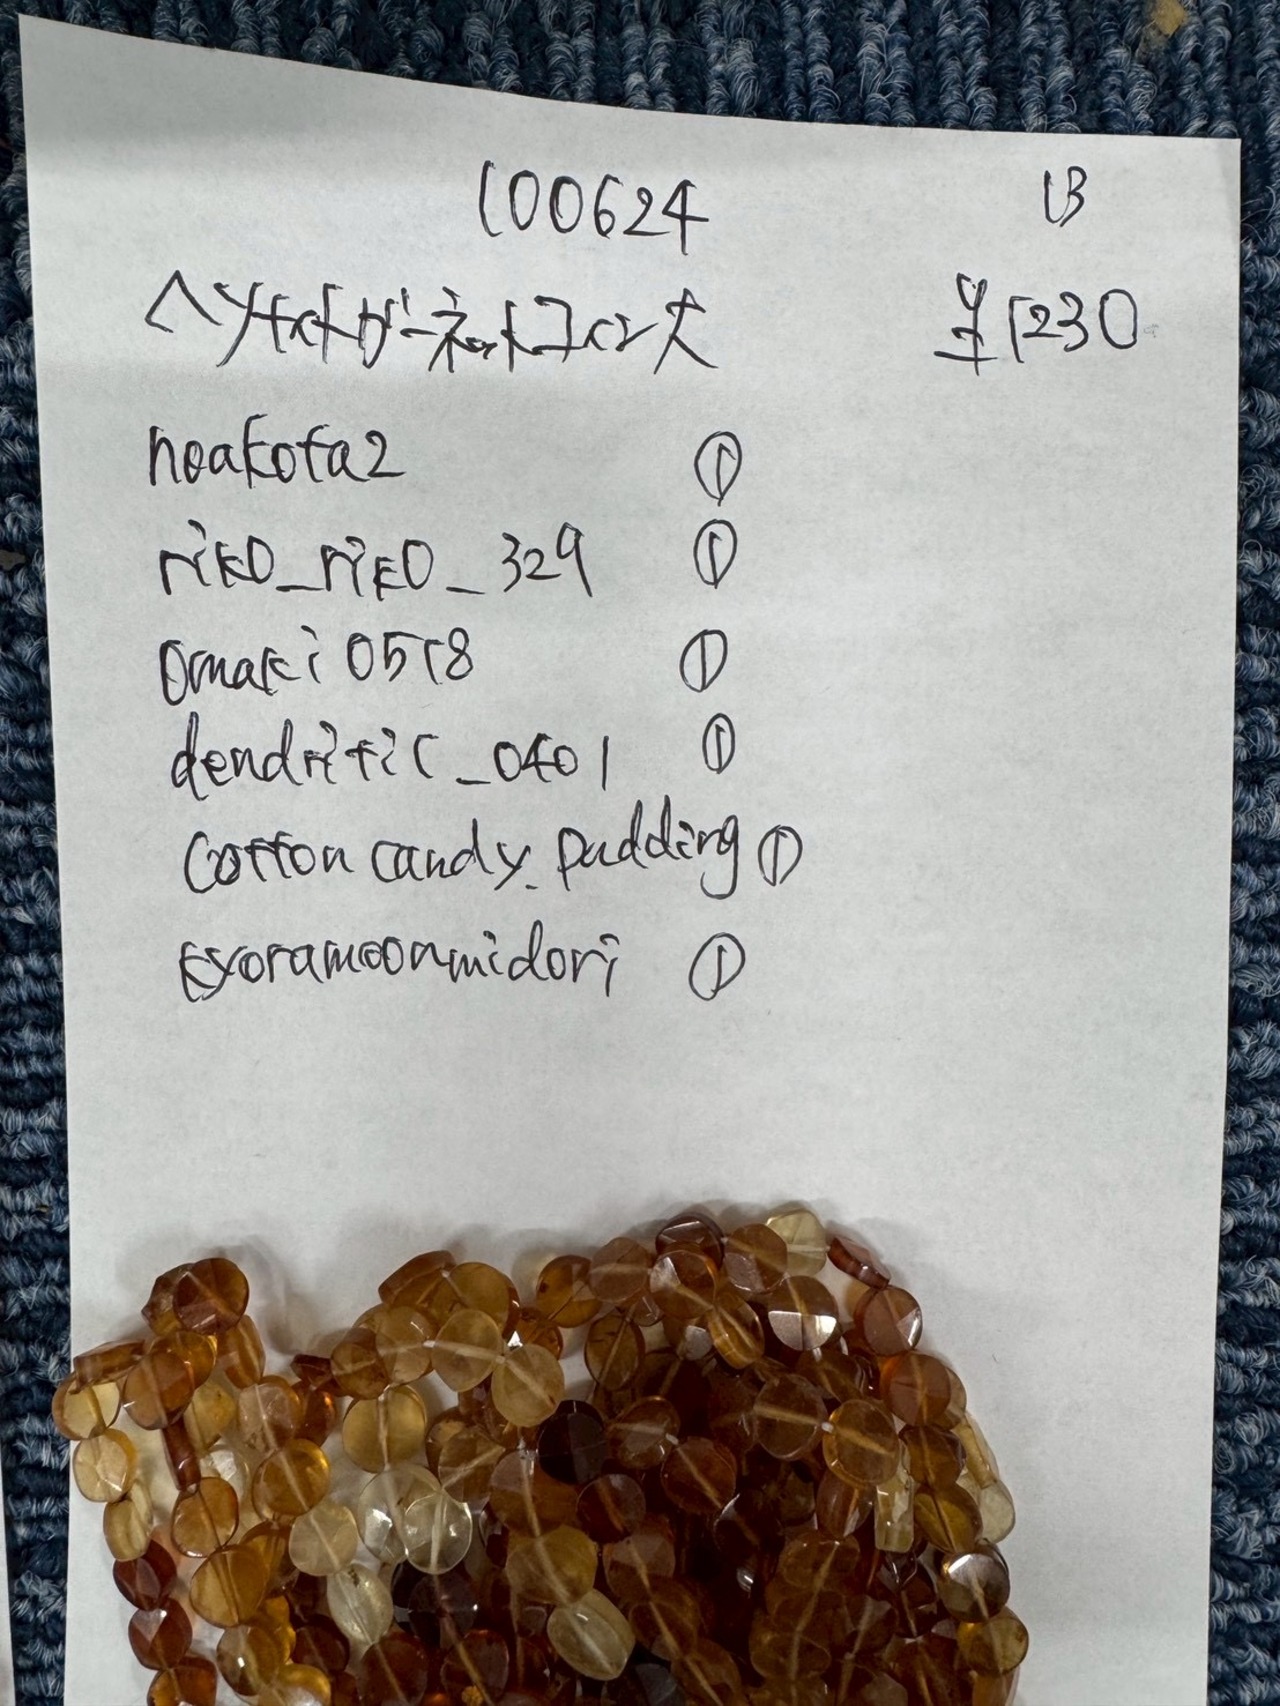 100624 13
ヘソナイトガーネットコイン大 半1230
noakota2 ①
riko_riko_329 ①
omaki0518 ①
dendritic_0401 ①
cotton candy.pudding ①
kyoramoonmidori ①